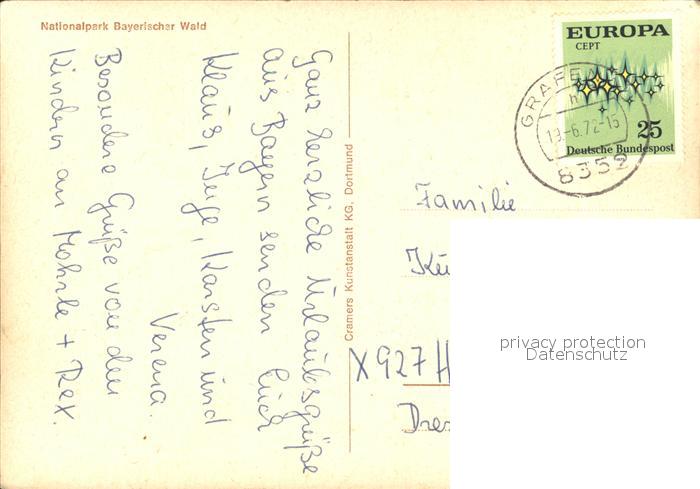 Nationalpark Bayerischer Wald
Ganz herzliche Urlaubsgrüße
aus Bayern senden Euch
Klaus, Inge, Karsten und
Verena.
Besondere Grüße von den
Kindern an Mohrle + Rex.
Cramers Kunstanstalt KG, Dortmund
EUROPA
CEPT
25
Deutsche Bundespost
GRAFEN
h
19.-6.72-15
8352
Familie
Kü
X927H
Dres
privacy protection
Datenschutz